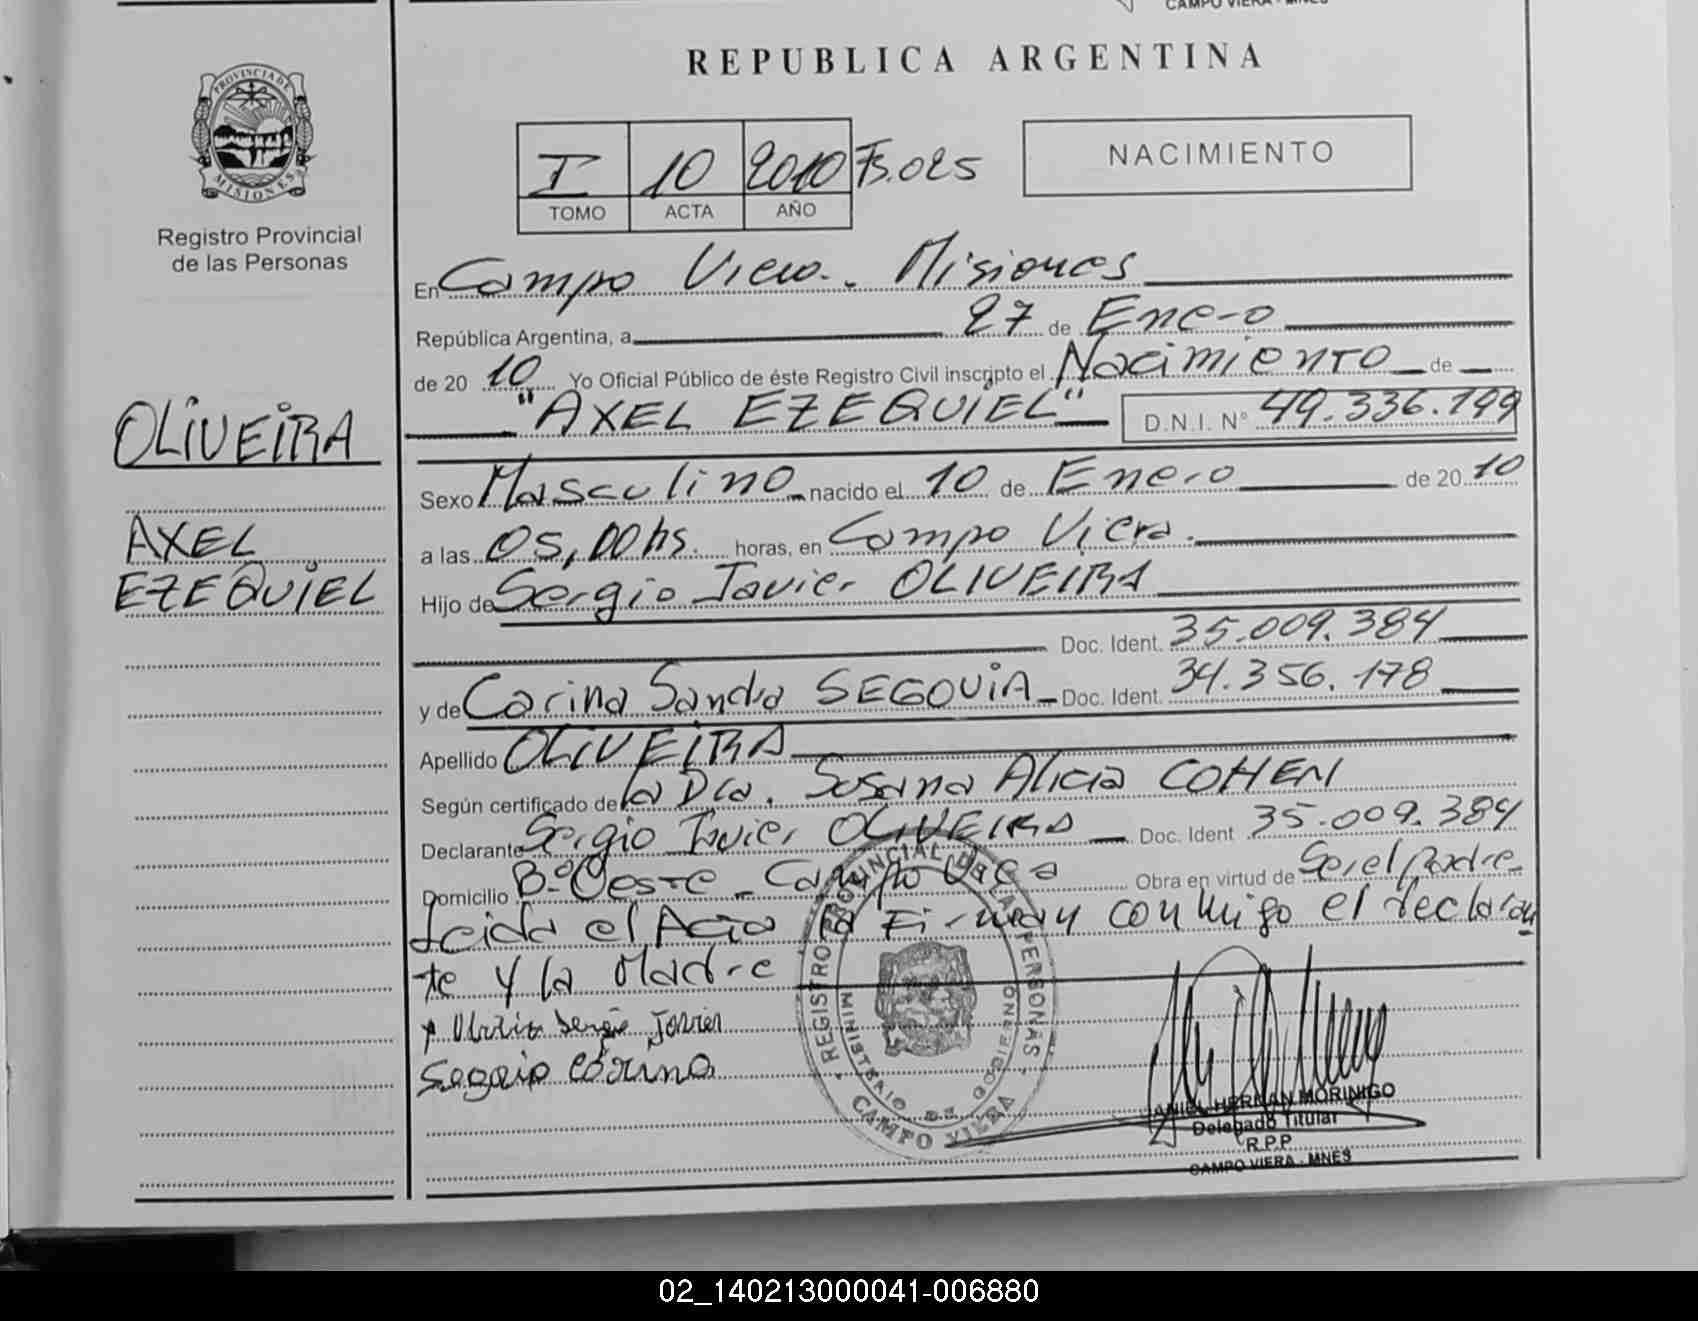 CAMPO VIERA - MNES
REPUBLICA ARGENTINA
PROVINCIA DE MISIONES
Registro Provincial
de las Personas
I 10 2010 Fs.025
TOMO ACTA AÑO
NACIMIENTO
En Campo Viera. Misiones
República Argentina, a 27 de Enero
de 20 10 Yo Oficial Público de éste Registro Civil inscripto el Nacimiento de
"AXEL EZEQUIEL" D.N.I. N° 49.336.199
OLIVEIRA
AXEL
EZEQUIEL
Sexo Masculino nacido el 10 de Enero de 20 10
a las 05,00hs. horas, en Campo Viera.
Hijo de Sergio Javier OLIVEIRA
Doc. Ident. 35.009.384
y de Carina Sandra SEGOVIA Doc. Ident. 34.356.178
Apellido OLIVEIRA
Según certificado de la Dra. Susana Alicia COHEN
Declarante Sergio Javier OLIVEIRA Doc. Ident 35.009.384
Domicilio B.º Oeste - Campo Viera Obra en virtud de Ser el padre
Leida el Acta la Firman conmigo el declaran
te y la Madre
Sergio Javier
Segovia Carina
REGISTRO PROVINCIAL DE LAS PERSONAS
MINISTERIO DE GOBIERNO
CAMPO VIERA
DANIEL HERNAN MORINIGO
Delegado Titular
R.P.P.
CAMPO VIERA - MNES
02_140213000041-006880